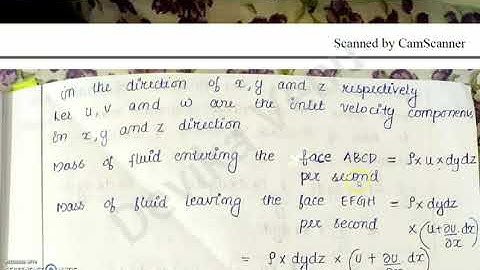 Scanned by CamScanner
in the direction of x, y and z respectively
Let u, v and w are the inlet velocity components
in x, y and z direction
Mass of fluid entering the face ABCD = ρ × u × dydz
per second
Mass of fluid leaving the face EFGH = ρ × dydz
per second × (u + ∂u/∂x dx)
= ρ × dydz × (u + ∂u/∂x dx)